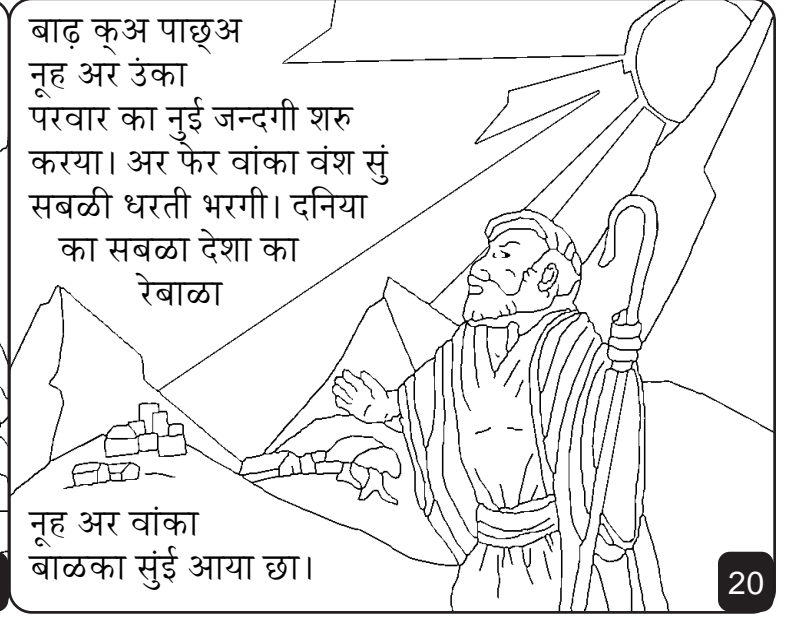 बाढ़ क्अ पाछ्अ
नूह अर उंका
परवार का नुई जन्दगी शरु
करया। अर फेर वांका वंश सुं
सबळी धरती भरगी। दनिया
का सबळा देशा का
रेबाळा
नूह अर वांका
बाळका सुंई आया छा।
20